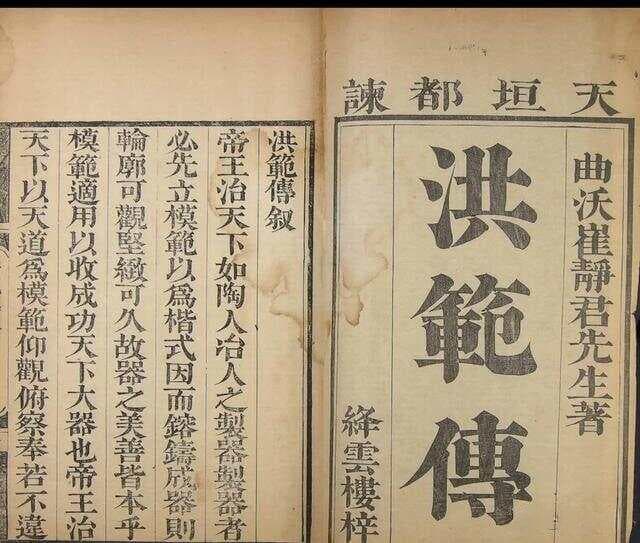 天垣都諫
曲沃崔靜君先生著
洪範傳
絳雲樓梓
洪範傳叙
帝王治天下如陶人冶人之製器製器者
必先立模範以爲楷式因而鎔鑄成器則
輪廓可觀堅緻可久故器之美善皆本乎
模範適用以收成功天下大器也帝王治
天下以天道爲模範仰觀俯察奉若不遠